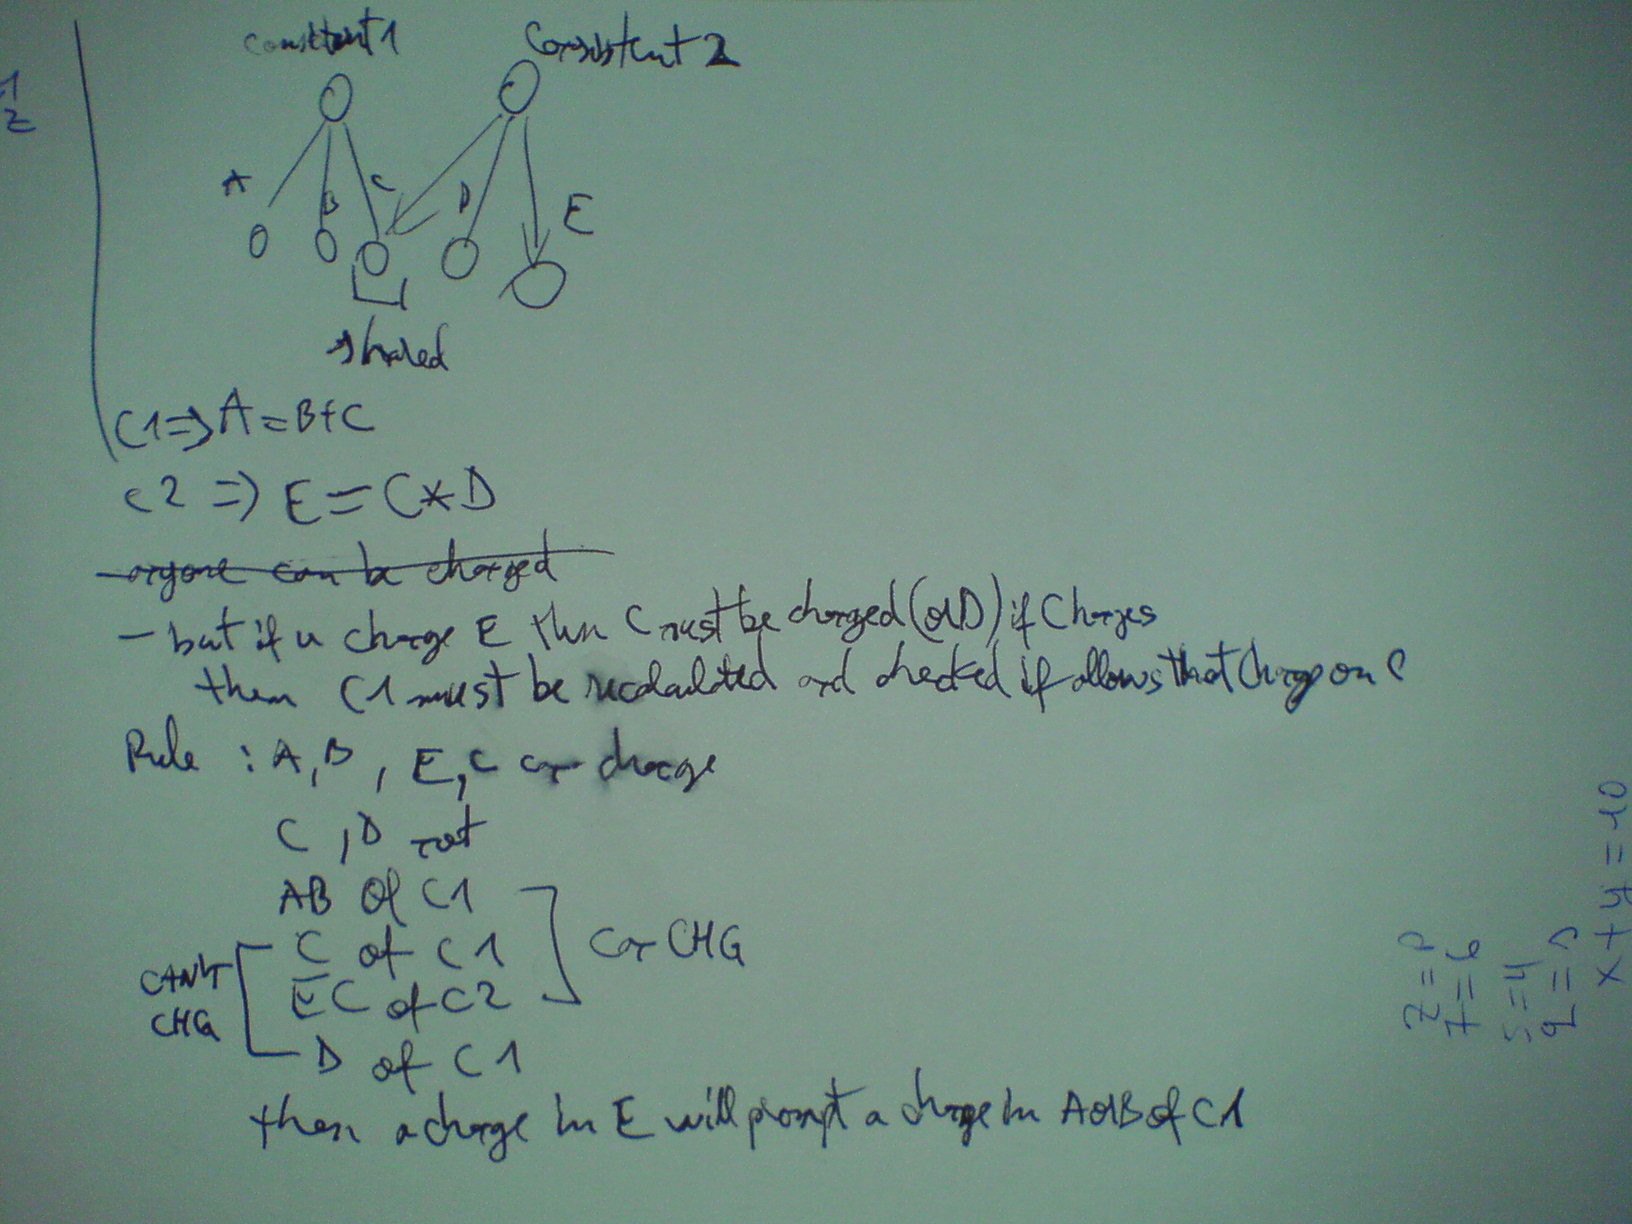 1
z
consistent 1
Consistent 2
A
B
C
D
E
shared
C1 => A = B + C
C2 => E = C * D
- anyone can be changed
- but if u change E then C must be changed (or D) if C changes
then C1 must be recalculated and checked if allows that change on C
Rule : A, B, E, C can change
C, D not
AB of C1
C of C1
can CHG
CAN'T
CHG
EC of C2
D of C1
then a change in E will prompt a change in A or B of C1
x + y = 10